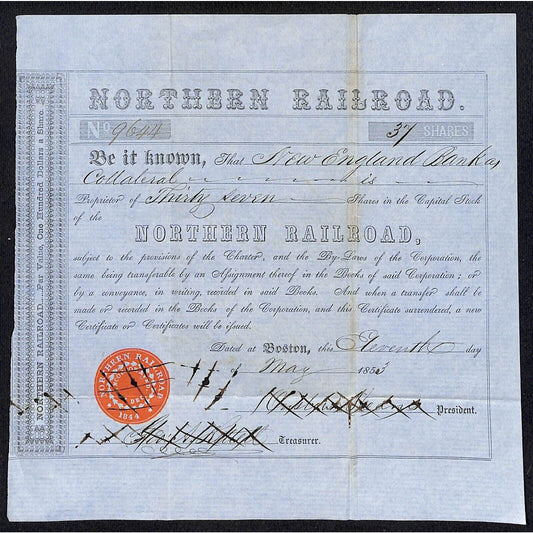 NORTHERN RAILROAD.
No 9644 37 SHARES
Be it known, That New England Bank as
Collateral is
Proprietor of Thirty Seven Shares in the Capital Stock
of the
NORTHERN RAILROAD,
subject to the provisions of the Charter, and the By-Laws of the Corporation, the
same being transferable by an Assignment thereof in the Books of said Corporation; or
by a conveyance, in writing, recorded in said Books. And when a transfer shall be
made or recorded in the Books of the Corporation, and this Certificate surrendered, a new
Certificate or Certificates will be issued.
Dated at Boston, this Eleventh day
May 1853
President.
Treasurer.
NORTHERN RAILROAD
1844
NORTHERN RAILROAD. Par Value, One Hundred Dollars a Share.